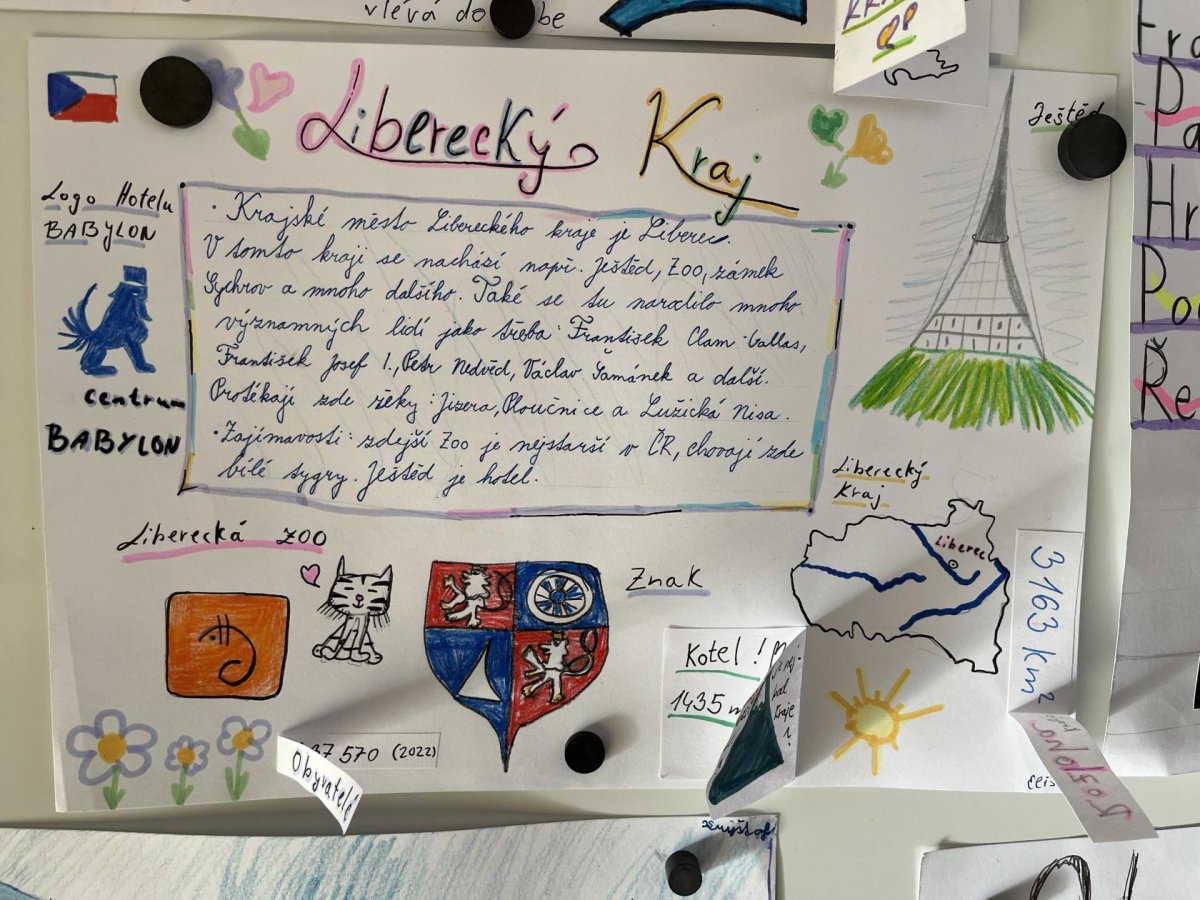 vlévá do
Liberecký Kraj
Ještěd
Logo Hotelu
BABYLON
centrum
BABYLON
• Krajské město Libereckého kraje je Liberec.
V tomto kraji se nachází např. Ještěd, ZOO, zámek
Sychrov a mnoho dalšího. Také se tu narodilo mnoho
významných lidí jako třeba: František Clam-Gallas,
František Josef I., Petr Nedvěd, Václav Šamánek a další.
Protékají zde řeky: Jizera, Ploučnice a Lužická Nisa.
• Zajímavosti: zdejší ZOO je nejstarší v ČR, chovají zde
bílé tygry. Ještěd je hotel.
Liberecká ZOO
Znak
Liberecký
Kraj
Liberec
3163 km²
Rozloha
Kotel!
1435
kraje
37 570 (2022)
Obyvatelé
Elis
Kryštof
Fra
Pa
Hr
Po
Ře